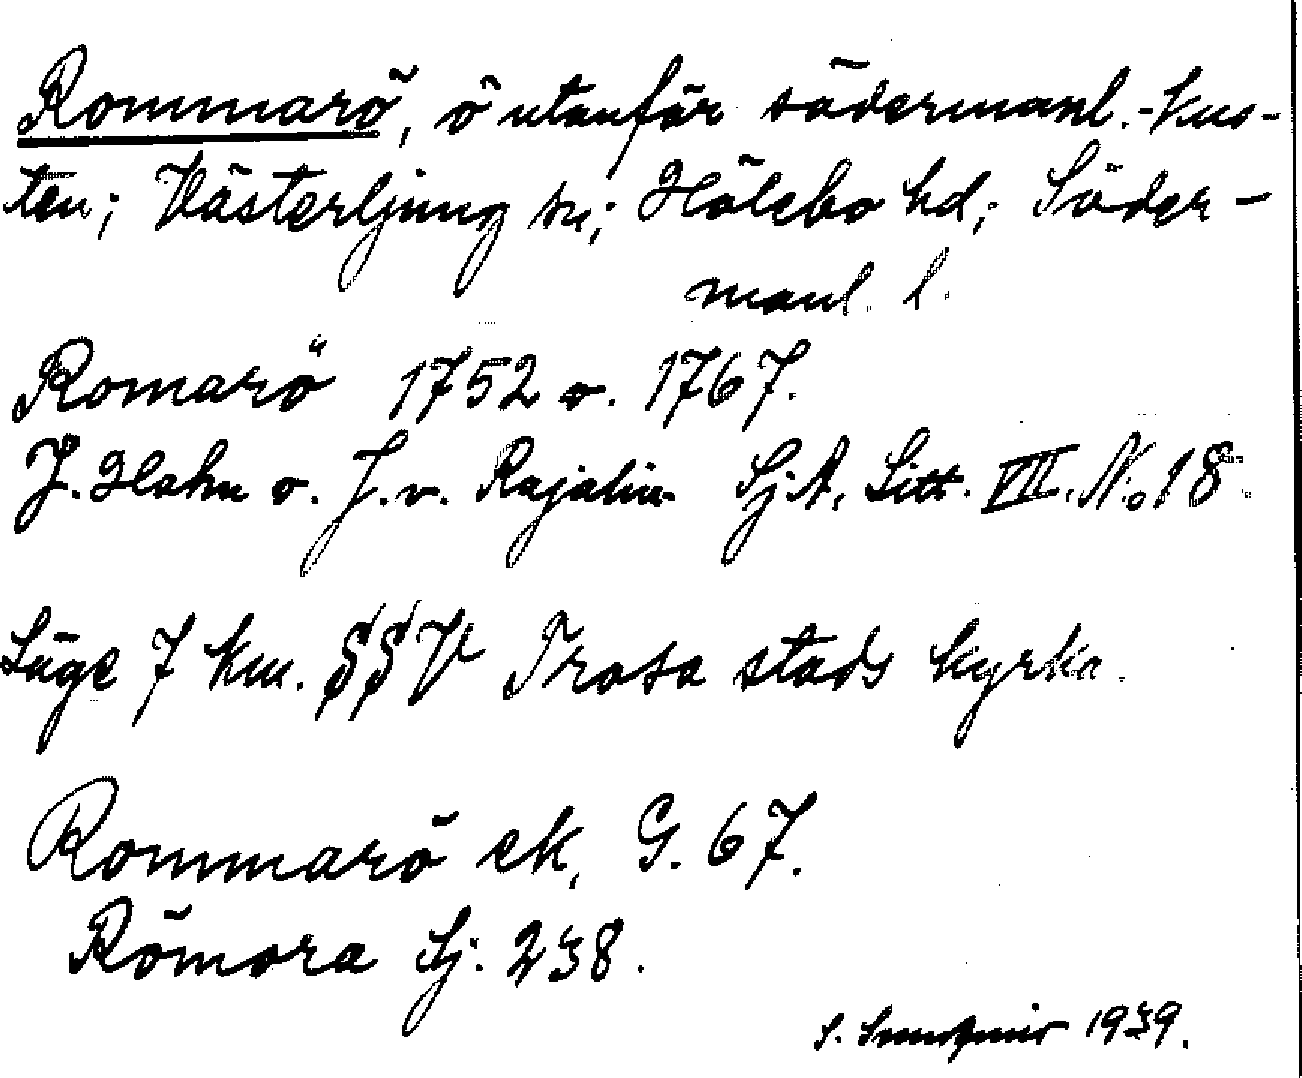 Rommarö, ö utanför södermanl.-kus-
ten; Västerljung sn; Hölebo hd; Söder-
manl. l.
Romarö 1752 o. 1767.
J. Hahn o. J. v. Rajalin Sj.A, Litt. VII. No 18.
Läge 7 km. §§V Trosa stads kyrka.
Rommarö ek, G. 67.
Römora Sj. 238.
S. 1939.